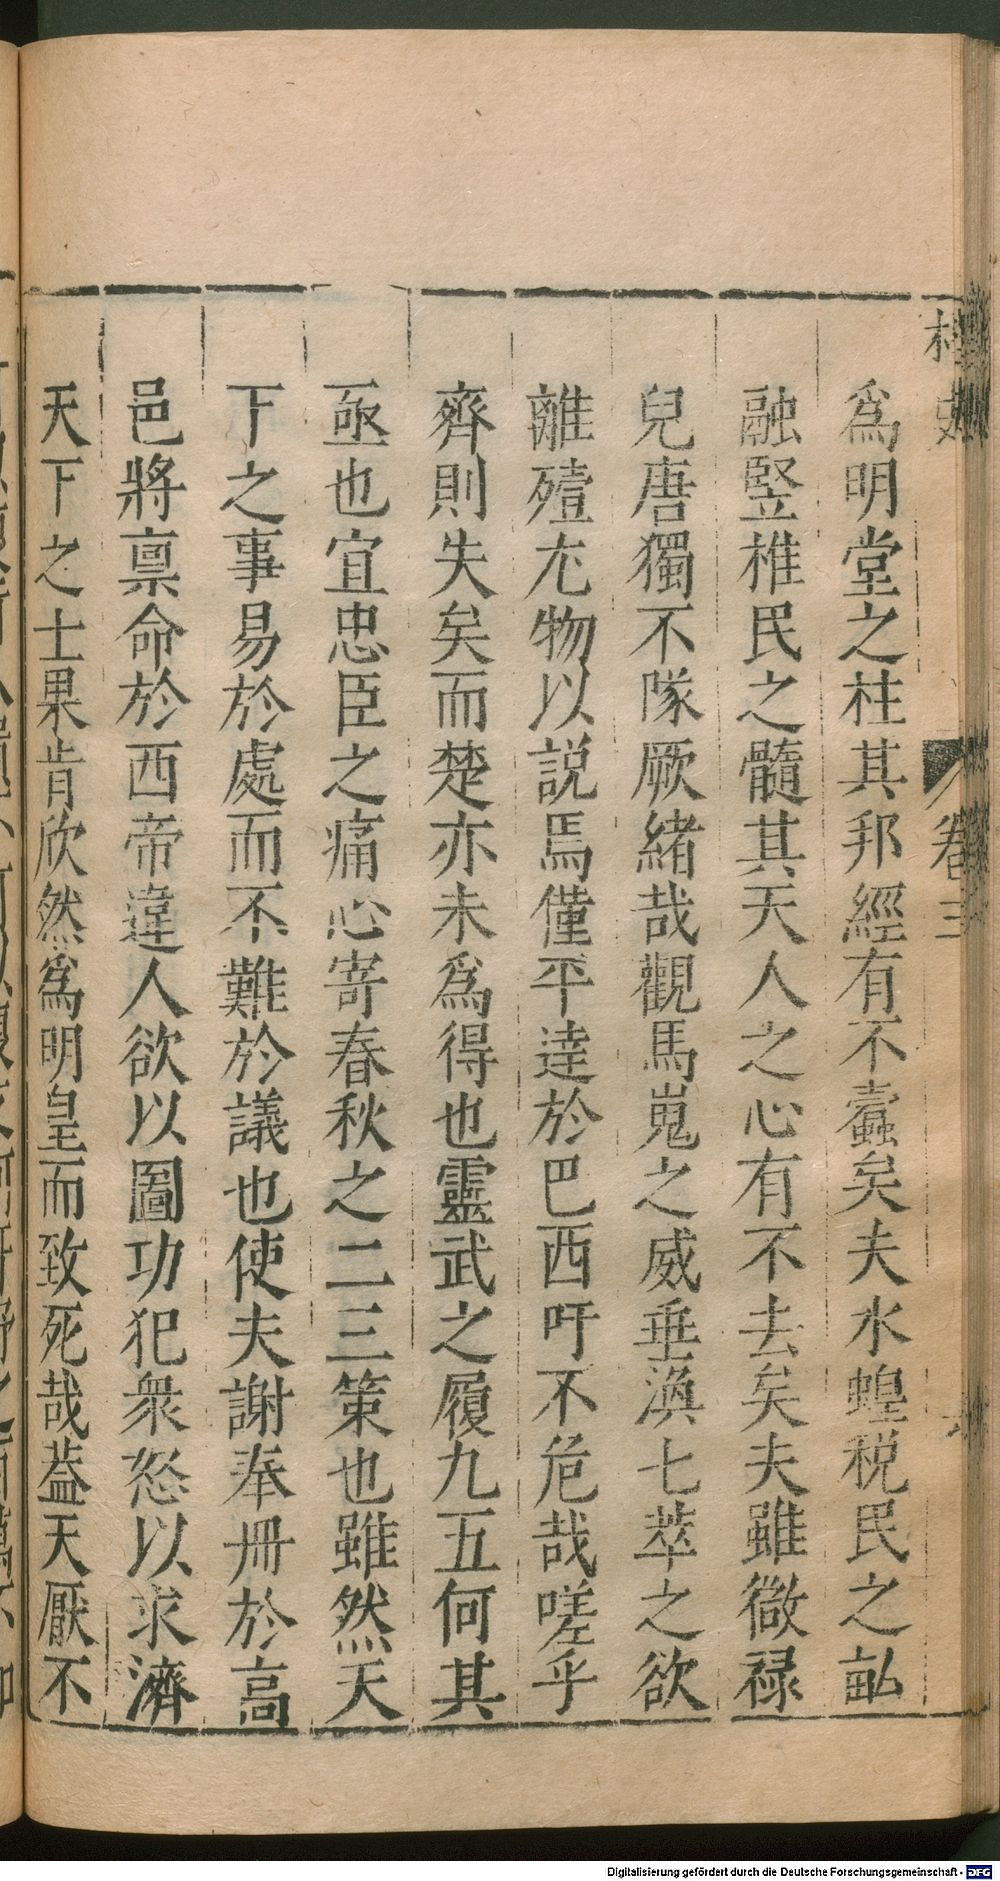 桯史
卷三
六
爲明堂之柱其邦經有不蠹矣夫水蝗税民之畝
融竪椎民之髓其天人之心有不去矣夫雖微禄
兒唐獨不隊厥緒哉觀馬嵬之威垂渙七萃之欲
離殪尤物以説焉僅平達於巴西吁不危哉嗟乎
齊則失矣而楚亦未爲得也靈武之履九五何其
亟也宜忠臣之痛心寄春秋之二三策也雖然天
下之事易於處而不難於議也使夫謝奉冊於高
邑將禀命於西帝違人欲以圖功犯衆怒以求濟
天下之士果肯欣然爲明皇而致死哉葢天厭不
Digitalisierung gefördert durch die Deutsche Forschungsgemeinschaft - DFG